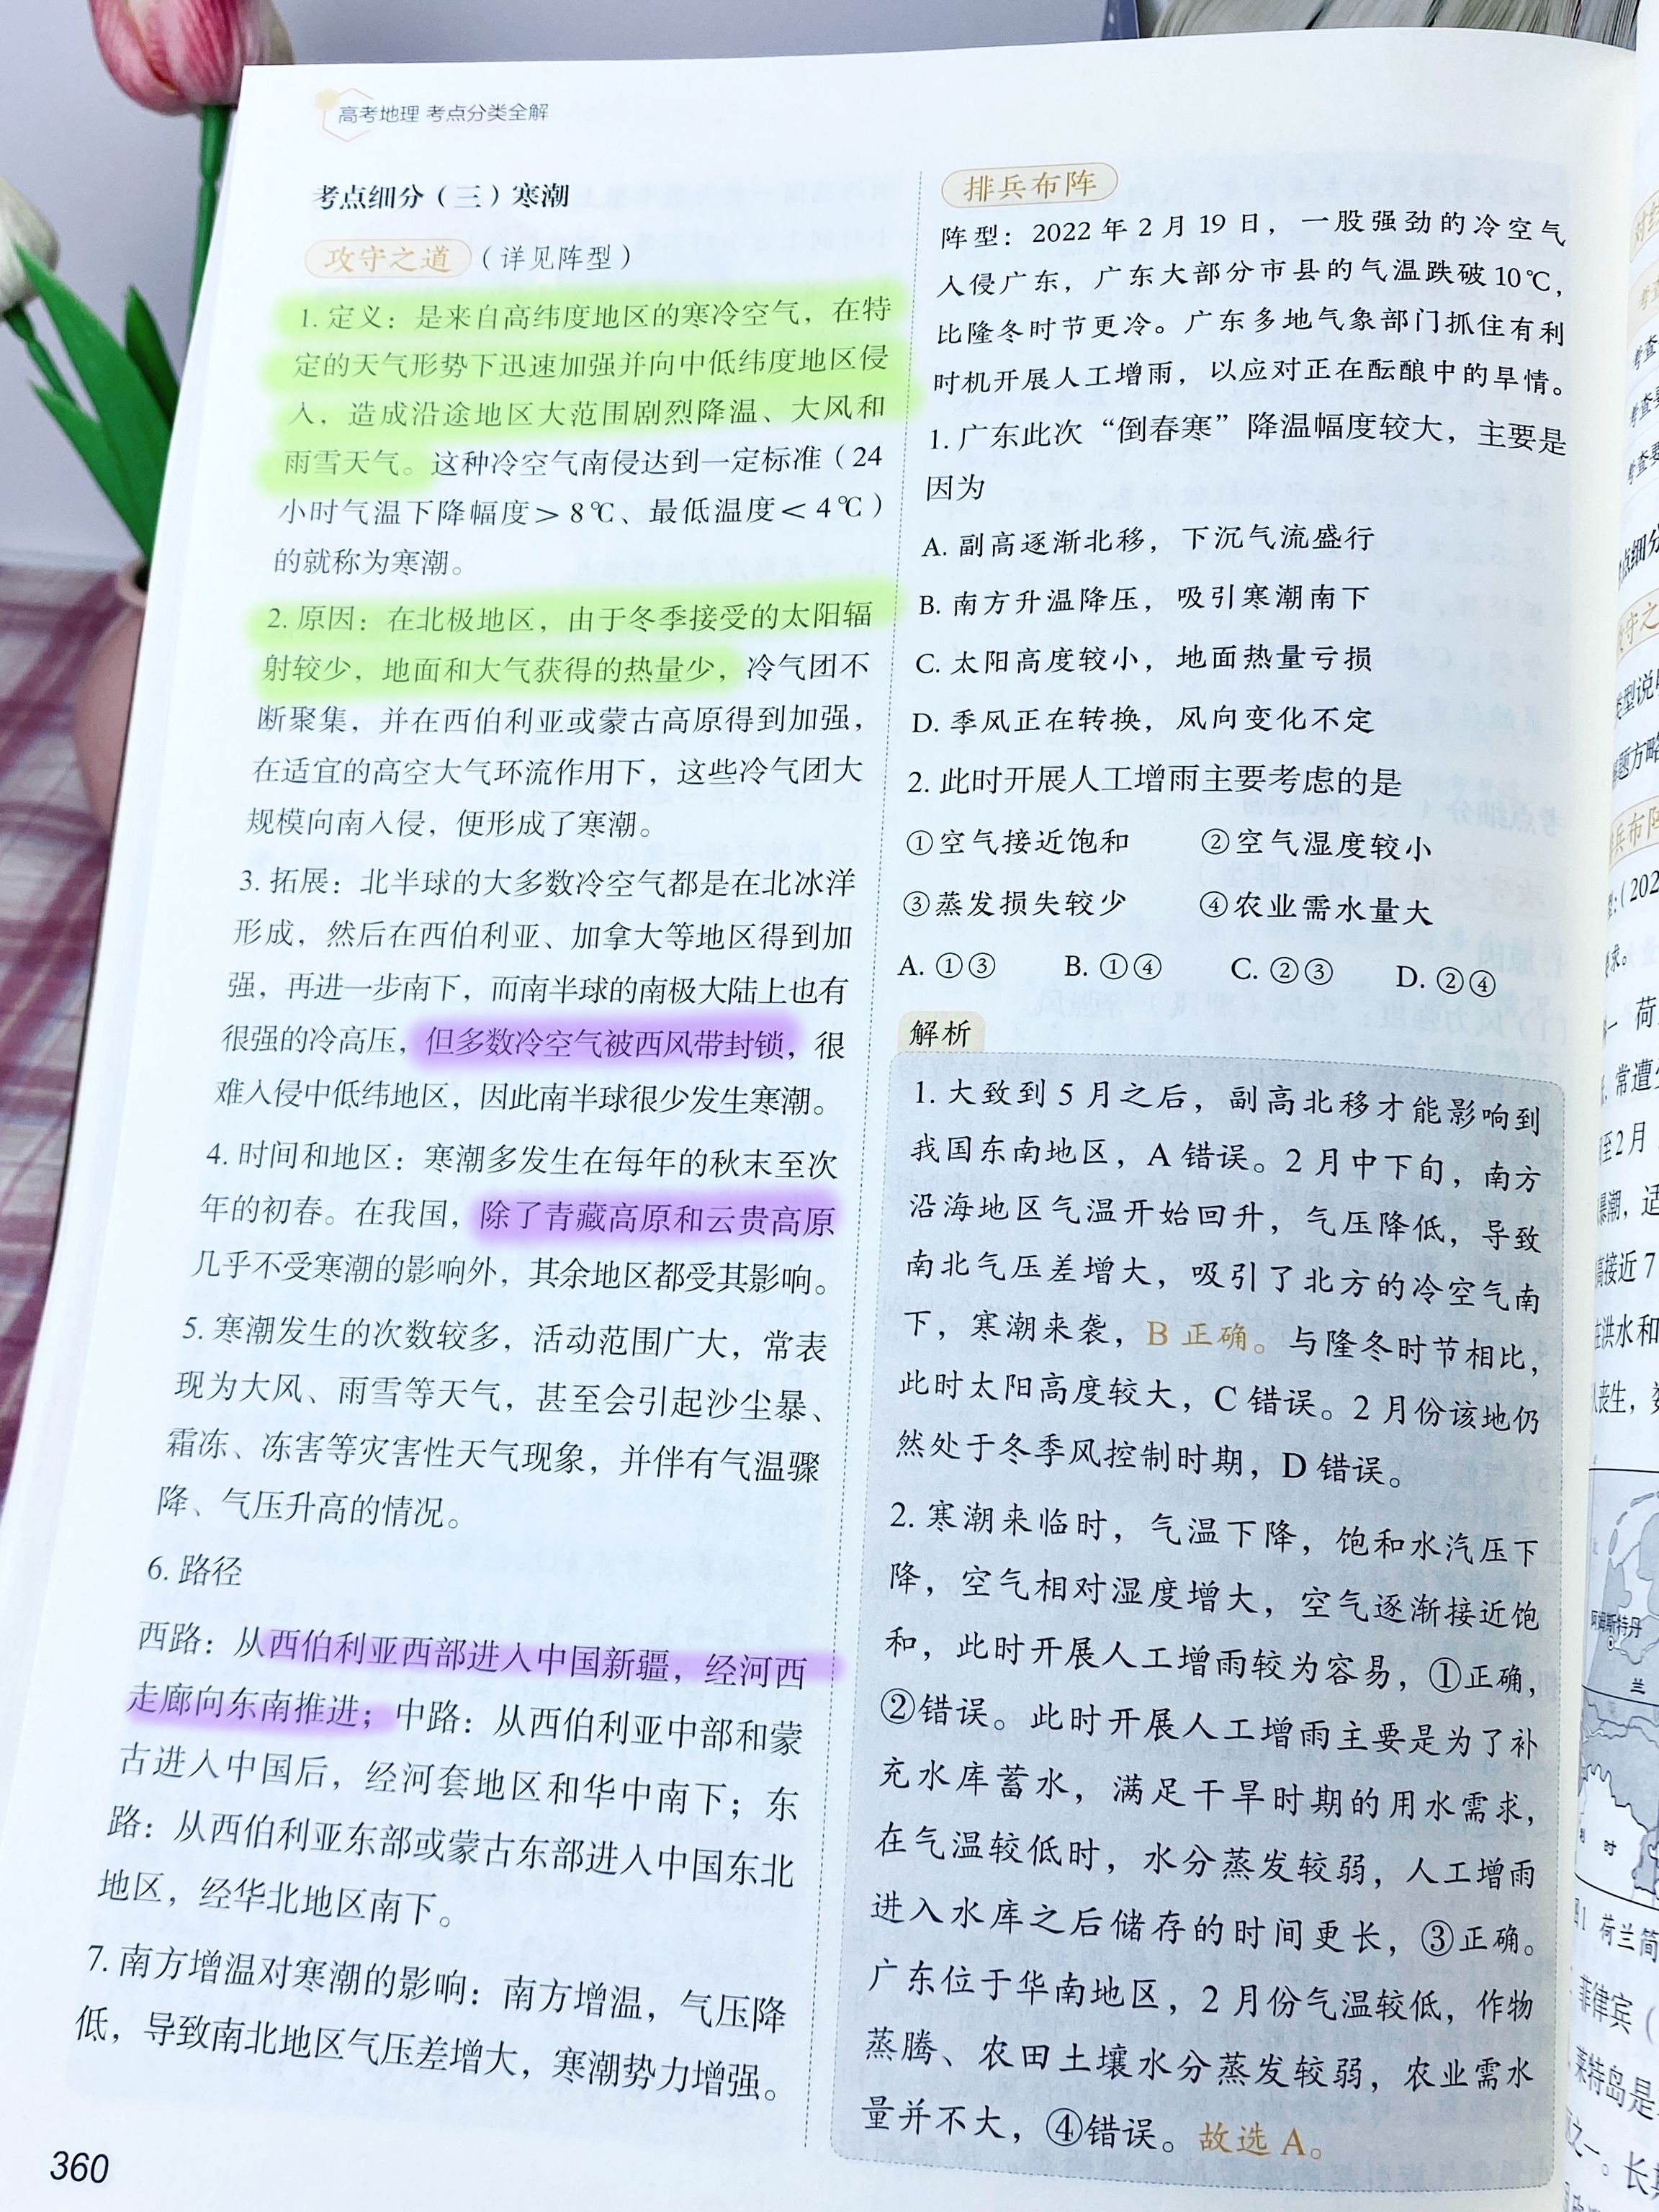 高考地理 考点分类全解
考点细分（三）寒潮
攻守之道（详见阵型）
1. 定义：是来自高纬度地区的寒冷空气，在特
定的天气形势下迅速加强并向中低纬度地区侵
入，造成沿途地区大范围剧烈降温、大风和
雨雪天气。这种冷空气南侵达到一定标准（24
小时气温下降幅度＞8℃、最低温度＜4℃）
的就称为寒潮。
2. 原因：在北极地区，由于冬季接受的太阳辐
射较少，地面和大气获得的热量少，冷气团不
断聚集，并在西伯利亚或蒙古高原得到加强，
在适宜的高空大气环流作用下，这些冷气团大
规模向南入侵，便形成了寒潮。
3. 拓展：北半球的大多数冷空气都是在北冰洋
形成，然后在西伯利亚、加拿大等地区得到加
强，再进一步南下，而南半球的南极大陆上也有
很强的冷高压，但多数冷空气被西风带封锁，很
难入侵中低纬地区，因此南半球很少发生寒潮。
4. 时间和地区：寒潮多发生在每年的秋末至次
年的初春。在我国，除了青藏高原和云贵高原
几乎不受寒潮的影响外，其余地区都受其影响。
5. 寒潮发生的次数较多，活动范围广大，常表
现为大风、雨雪等天气，甚至会引起沙尘暴、
霜冻、冻害等灾害性天气现象，并伴有气温骤
降、气压升高的情况。
6. 路径
西路：从西伯利亚西部进入中国新疆，经河西
走廊向东南推进；中路：从西伯利亚中部和蒙
古进入中国后，经河套地区和华中南下；东
路：从西伯利亚东部或蒙古东部进入中国东北
地区，经华北地区南下。
7. 南方增温对寒潮的影响：南方增温，气压降
低，导致南北地区气压差增大，寒潮势力增强。
360
排兵布阵
阵型：2022年2月19日，一股强劲的冷空气
入侵广东，广东大部分市县的气温跌破10℃，
比隆冬时节更冷。广东多地气象部门抓住有利
时机开展人工增雨，以应对正在酝酿中的旱情。
1. 广东此次“倒春寒”降温幅度较大，主要是
因为
A. 副高逐渐北移，下沉气流盛行
B. 南方升温降压，吸引寒潮南下
C. 太阳高度较小，地面热量亏损
D. 季风正在转换，风向变化不定
2. 此时开展人工增雨主要考虑的是
①空气接近饱和 ②空气湿度较小
③蒸发损失较少 ④农业需水量大
A. ①③ B. ①④ C. ②③ D. ②④
解析
1. 大致到5月之后，副高北移才能影响到
我国东南地区，A错误。2月中下旬，南方
沿海地区气温开始回升，气压降低，导致
南北气压差增大，吸引了北方的冷空气南
下，寒潮来袭，B正确。与隆冬时节相比，
此时太阳高度较大，C错误。2月份该地仍
然处于冬季风控制时期，D错误。
2. 寒潮来临时，气温下降，饱和水汽压下
降，空气相对湿度增大，空气逐渐接近饱
和，此时开展人工增雨较为容易，①正确，
②错误。此时开展人工增雨主要是为了补
充水库蓄水，满足干旱时期的用水需求，
在气温较低时，水分蒸发较弱，人工增雨
进入水库之后储存的时间更长，③正确。
广东位于华南地区，2月份气温较低，作物
蒸腾、农田土壤水分蒸发较弱，农业需水
量并不大，④错误。故选A。
考查
考查
点细分
守之
类型说
题方略
兵布阵
荷
常遭
至2月
暴潮，适
高接近7
洪水和
丧生，
阿姆斯特丹
兰
时
图1 荷兰简
菲律宾（
莱特岛是
之一。长